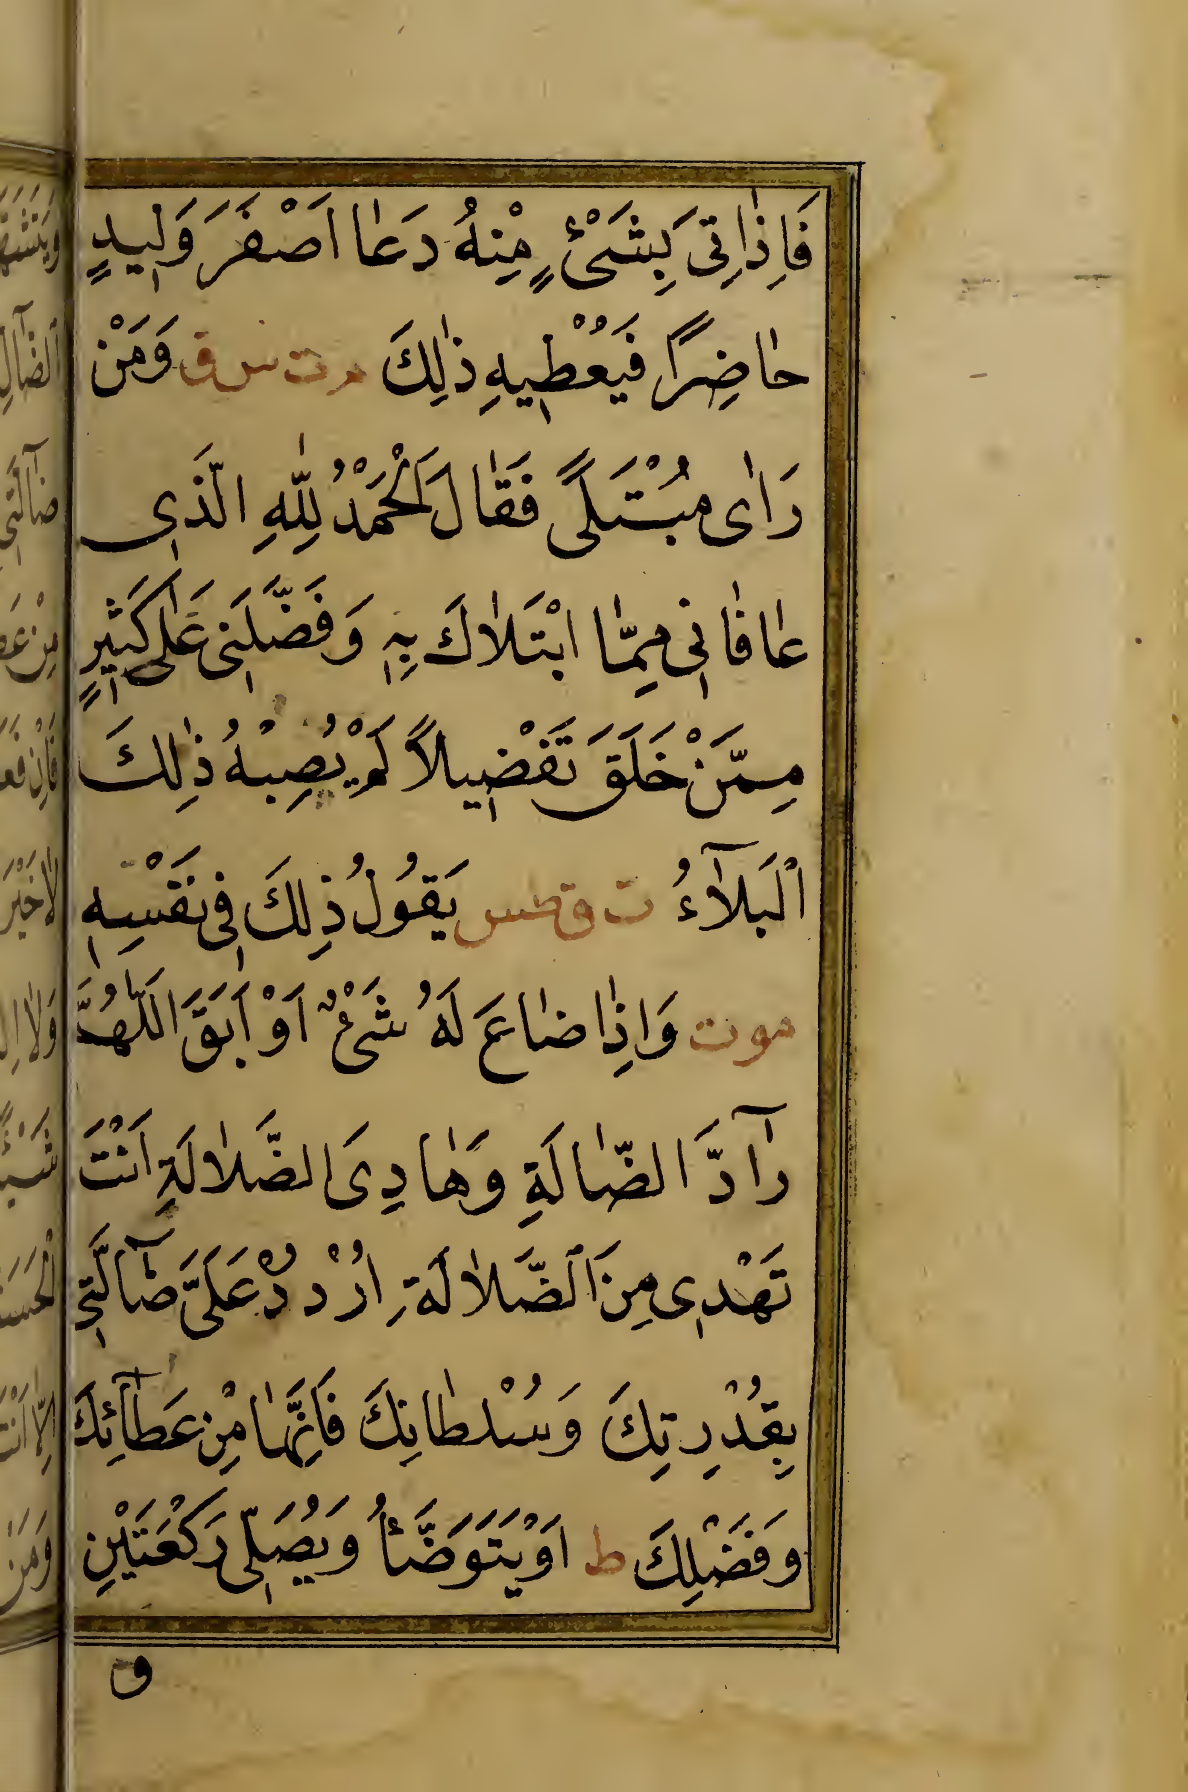 فَاِذٰا اُتِىَ بِشَىْءٍ مِنْهُ دَعٰا اَصْفَرَ وَلِيدٍ
حٰاضِرًا فَيُعْطِيهِ ذٰلِكَ م ت س ق وَمَنْ
رَاٰى مُبْتَلًى فَقٰالَ اَلْحَمْدُ لِلّٰهِ الَّذِى
عٰافٰانِى مِمَّا ابْتَلاٰكَ بِهِ وَفَضَّلَنِى عَلٰى كَثِيرٍ
مِمَّنْ خَلَقَ تَفْضِيلاً لَمْ يُصِبْهُ ذٰلِكَ
اْلبَلَآءُ ت ق طس يَقُولُ ذٰلِكَ فِى نَفْسِهِ
موت وَاِذٰا ضٰاعَ لَهُ شَىْءٌ اَوْ اَبَقَ اَللّٰهُمَّ
رٰآدَّ الضّٰالَةِ وَهٰادِىَ الضَّلاٰلَةِ اَنْتَ
تَهْدِى مِنَ الضَّلاٰلَةِ اُرْدُدْ عَلَىَّ ضٰآلَّتِى
بِقُدْرِتِكَ وَسُلْطٰانِكَ فَاِنَّهٰا مِنْ عَطٰآئِكَ
وَفَضْلِكَ ط اَوْ يَتَوَضَّأُ وَيُصَلِّى رَكْعَتَيْنِ
و